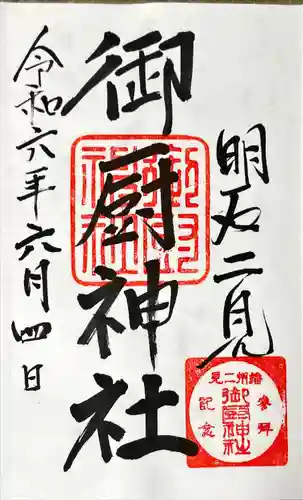 明石二見
御厨神社
令和六年六月四日
御厨神社
播州二見
御厨神社
参拝
記念